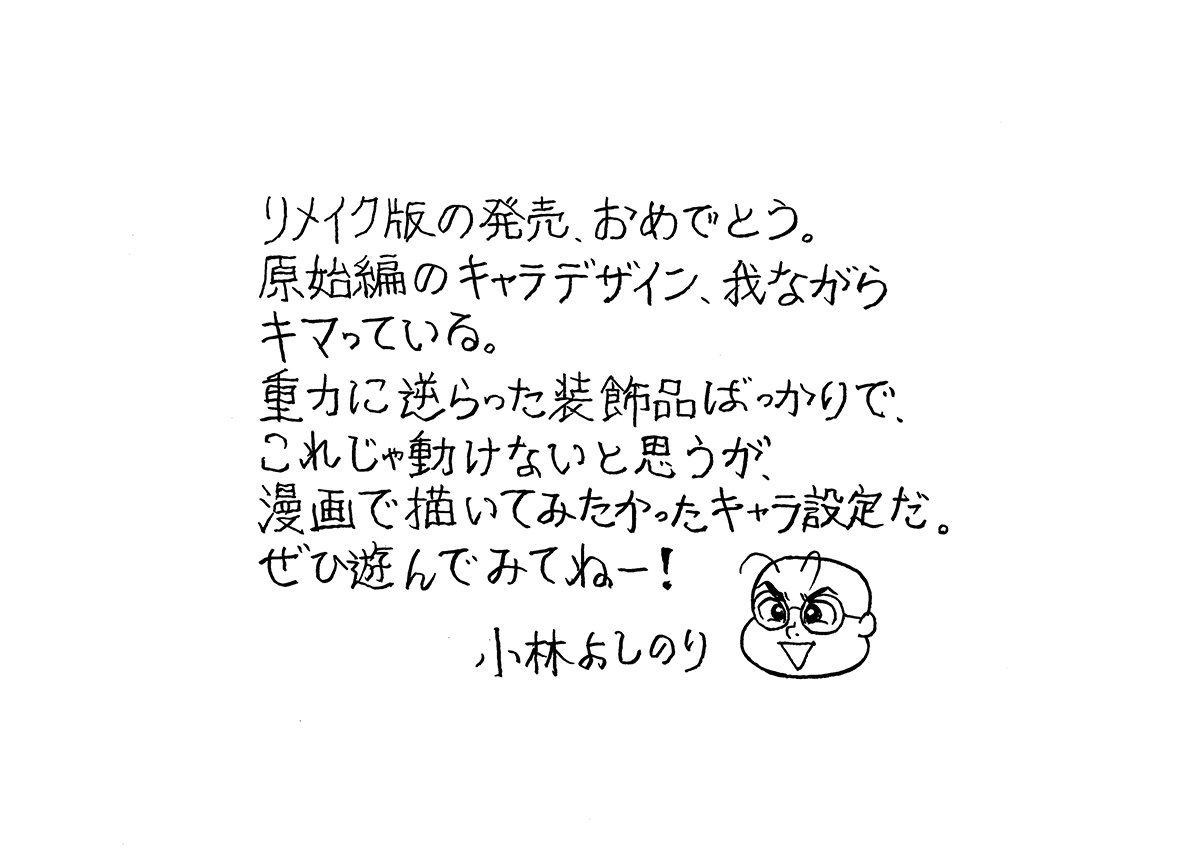 リメイク版の発売、おめでとう。
原始編のキャラデザイン、我ながら
キマっている。
重力に逆らった装飾品ばっかりで、
これじゃ動けないと思うが、
漫画で描いてみたかったキャラ設定だ。
ぜひ遊んでみてねー!
小林よしのり